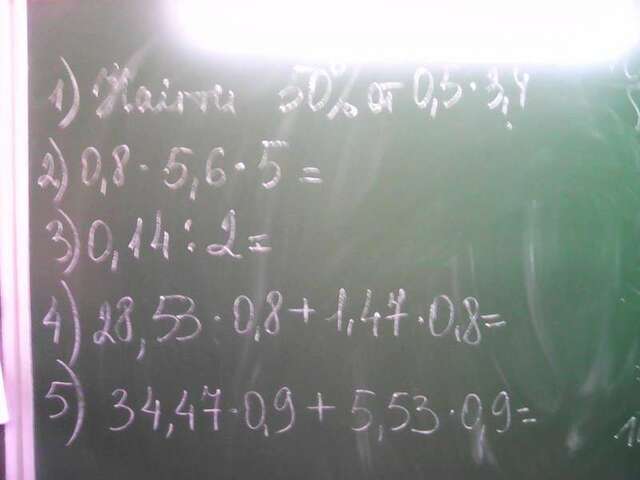 1) Найти 50% от 0,5·3,4
2) 0,8·5,6·5=
3) 0,14:2=
4) 28,53·0,8+1,47·0,8=
5) 34,47·0,9+5,53·0,9=